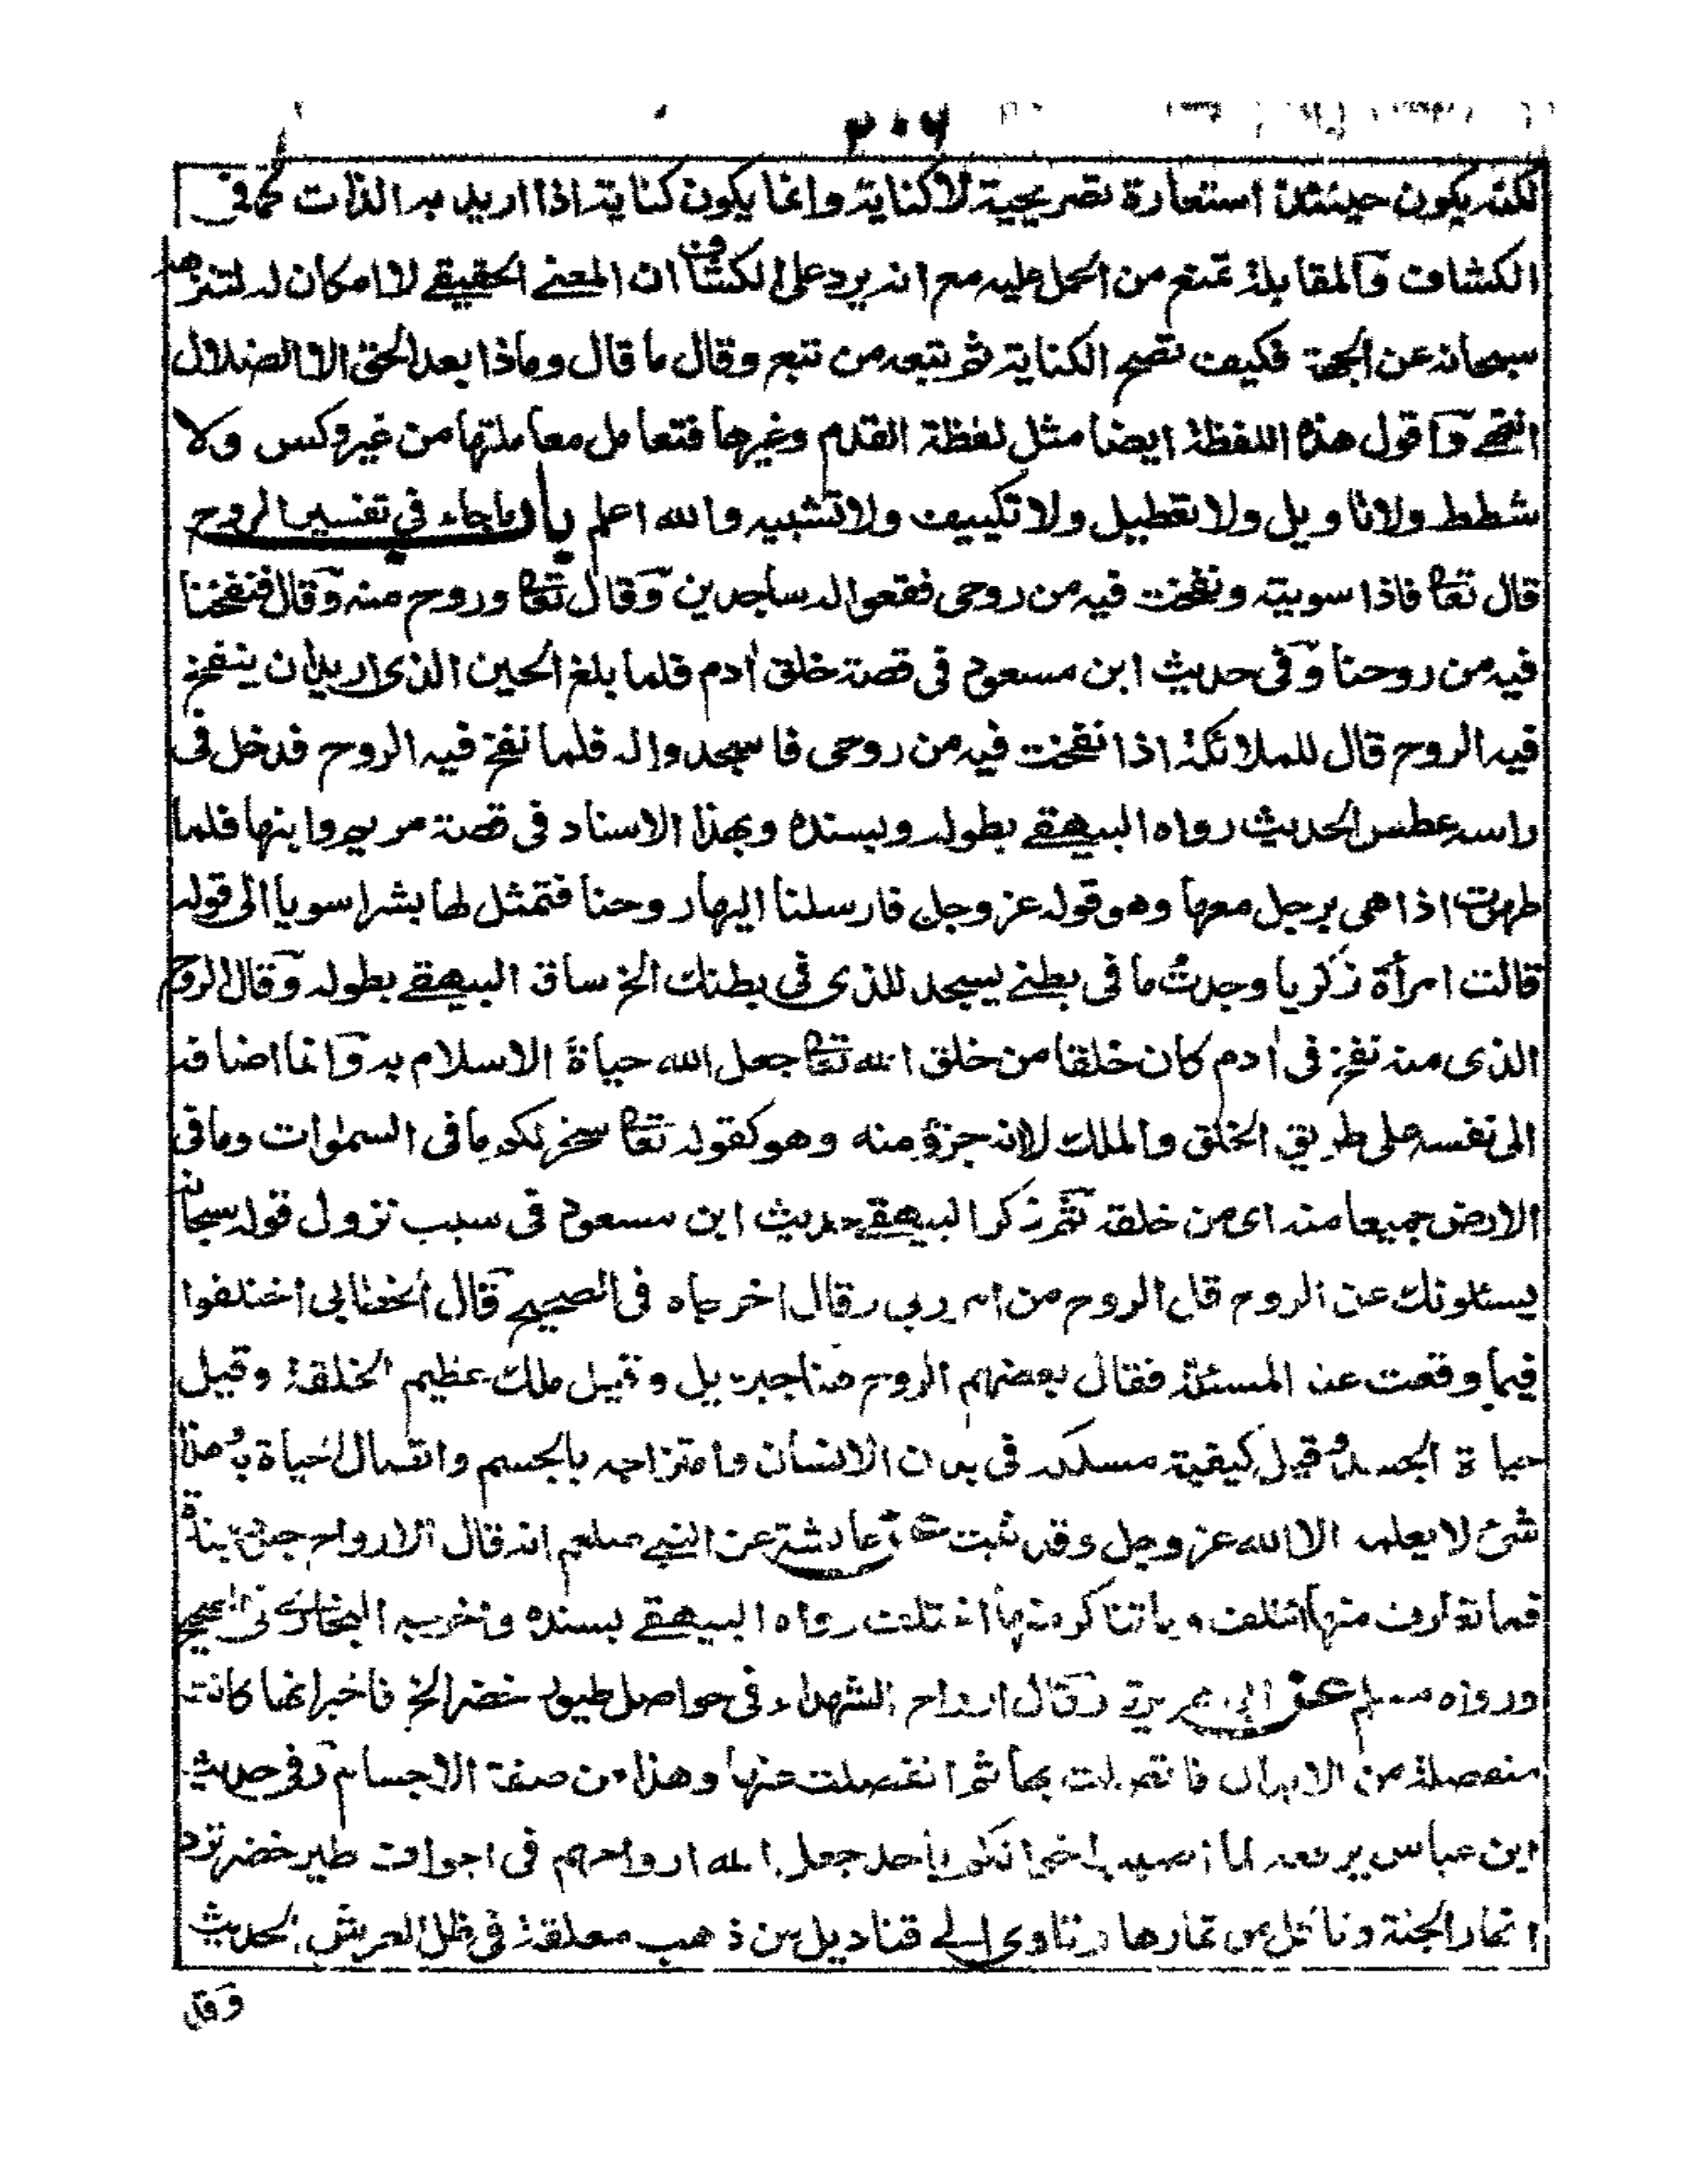 ٣٠٦
لكنه يكون حينئذ استعارة تصريحية لا كناية وانما يكون كناية اذا اريد به الذات كما في
الكشاف والمقابلة تمنع من الحمل عليه مع انه يرد على الكشاف ان المعنى الحقيقي لا امكان له لتنزهه
سبحانه عن الجهة فكيف تصح الكناية ثم يتبعه من تبع وقال ما قال وماذا بعد الحق الا الضلال
انتهى واقول هذه اللفظة ايضا مثل لفظة القدم وغيرها فتعامل معاملتها من غير وكس ولا
شطط ولا تاويل ولا تعطيل ولا تكييف ولا تشبيه والله اعلم باب ما جاء في تفسير الروح
قال تعا فاذا سويته ونفخت فيه من روحي فقعوا له ساجدين وقال تعا وروح منه وقال فنفخنا
فيه من روحنا وفي حديث ابن مسعود في قصة خلق أدم فلما بلغ الحين الذي اريد ان ينفخ
فيه الروح قال للملائكة اذا نفخت فيه من روحي فاسجدوا له فلما نفخ فيه الروح فدخل في
راسه عطس الحديث رواه البيهقي بطوله وبسنده وبهذا الاسناد في قصة مريم وابنها فلما
طهرت اذا هي برجل معها وهو قوله عز وجل فارسلنا اليها روحنا فتمثل لها بشرا سويا الى قوله
قالت امرأة زكريا وجدت ما في بطني يسجد للذي في بطنك الخ ساق البيهقي بطوله وقال الروح
الذي منه نفخ في أدم كان خلقا من خلق الله تعا جعل الله حياة الاسلام به وانما اضافه
الى نفسه على طريق الخلق والملك لا انه جزؤ منه وهو كقوله تعا سخر لكم ما في السموات وما في
الارض جميعا منه اى من خلقه ثم ذكر البيهقي حديث ابن مسعود في سبب نزول قوله سبحانه
يسئلونك عن الروح قل الروح من امر ربي وقال اخرجاه في الصحيح قال الخطابي اختلفوا
فيما وقعت عنه المسئلة فقال بعضهم الروح هنا جبرئيل وقيل ملك عظيم الخلقة وقيل
حياة الجسد وقيل كيفية مسلكه في بدن الانسان وامتزاجه بالجسم واتصال الحياة به وهذا
شئ لا يعلمه الا الله عز وجل وقد ثبت عن عائشة عن النبي صلعم انه قال الارواح جنود مجندة
فما تعارف منها ائتلف وما تناكر منها اختلف رواه البيهقي بسنده واخرجه البخاري في الصحيح
ورواه مسلم عن ابي هريرة وقال ارواح الشهداء في حواصل طيور خضر الخ فاخبر انها كانت
منفصلة من الابدان فاتصلت بها ثم انفصلت عنها وهذا من صفة الاجسام وفي حديث
ابن عباس يرفعه لما اصيب اخوانكم بأحد جعل الله ارواحهم في اجواف طير خضر ترد
انهار الجنة وتاكل من ثمارها وتاوى الى قناديل من ذهب معلقة في ظل العرش الحديث
وقد